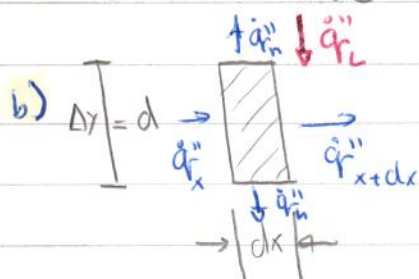 q̇"ₙ q̇"_L
b) Δy = d q̇"ₓ q̇"ₓ₊dx
q̇"ₙ
dx